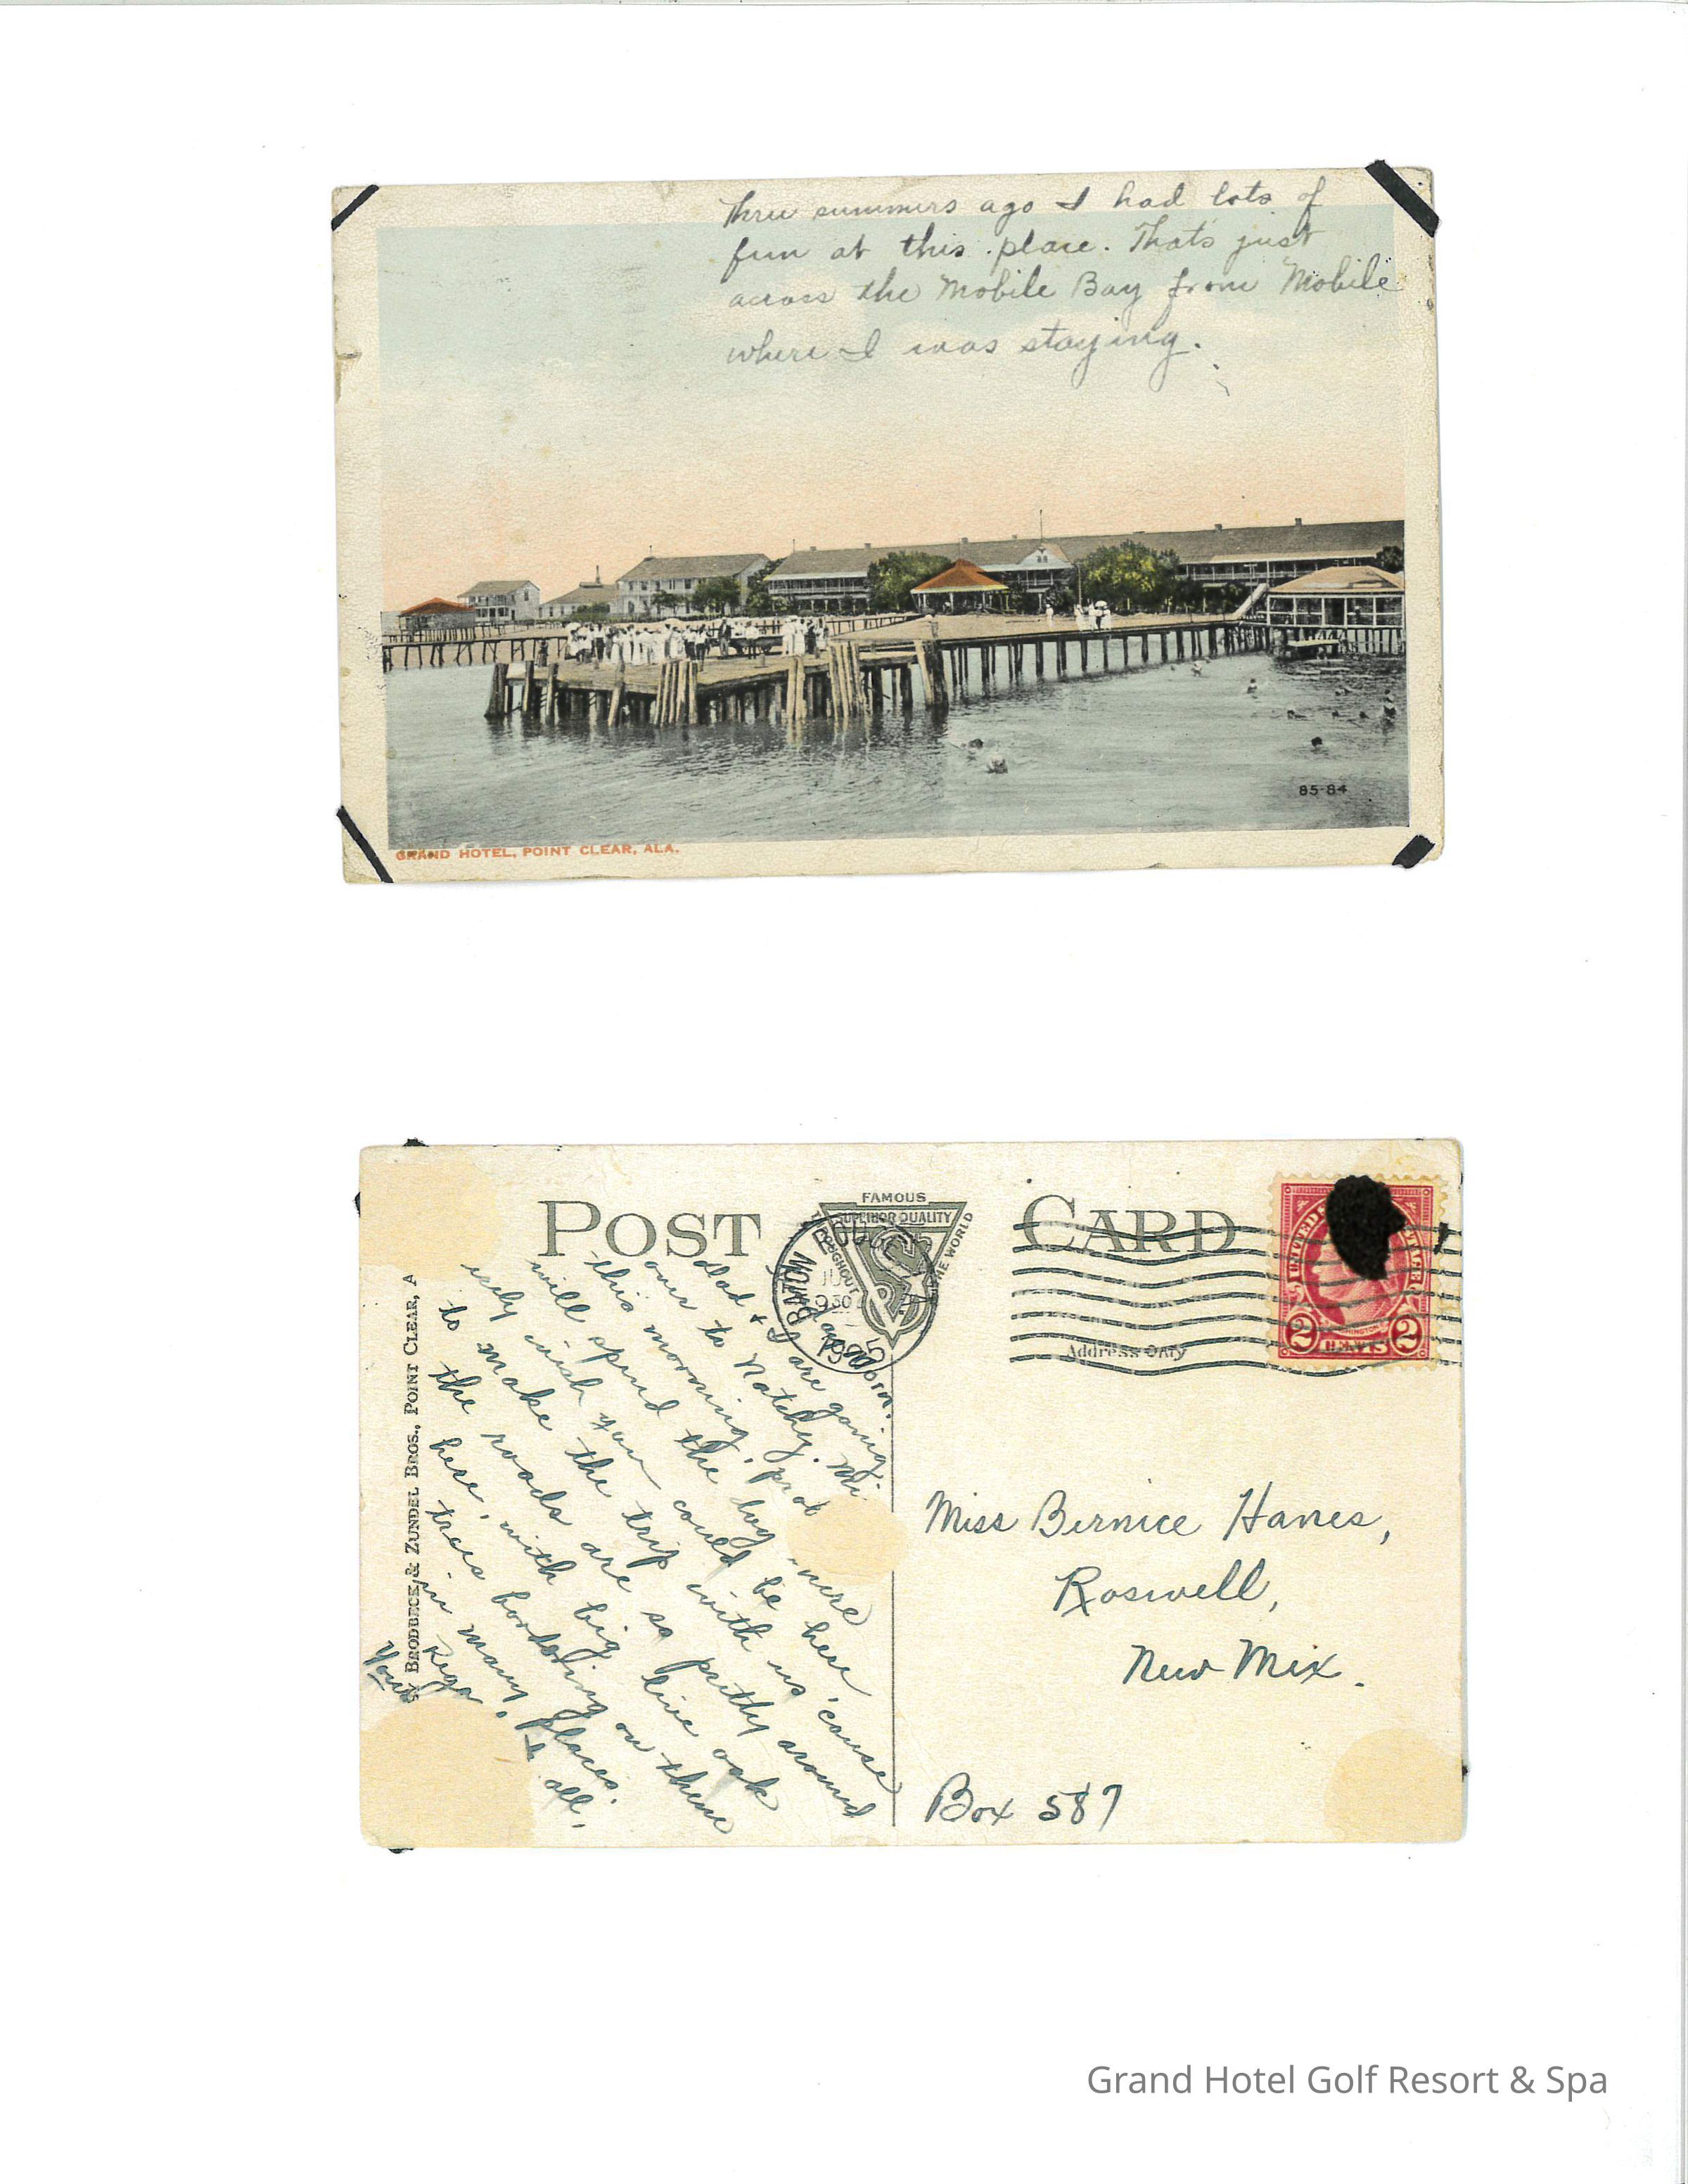 Three summers ago I had lots of
fun at this place. That's just
across the Mobile Bay from Mobile
where I was staying.
85-84
GRAND HOTEL, POINT CLEAR, ALA.
POST CARD
FAMOUS
SUPERIOR QUALITY
THROUGHOUT THE WORLD
BATON ROUGE
930
1925
UNITED STATES
WASHINGTON
2 CENTS 2
Address Only
BRODBECK & ZUNDEL BROS., POINT CLEAR, A
Dad & I are going
over to Natchez, Mi
this morning, prob
will spend the day
wish you could be here
to make the trip with us 'cause
the roads are so pretty around
here, with big live oak
trees bordering on them
in many places.
all.
Miss Bernice Hanes,
Roswell,
New Mex.
Box 587
Grand Hotel Golf Resort & Spa